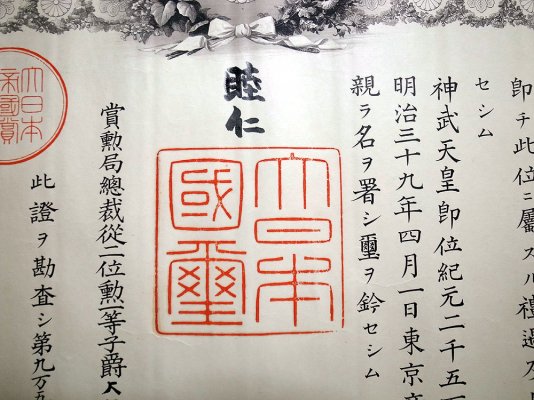 即チ此位ニ屬スル禮遇及
セシム
神武天皇即位紀元二千五
明治三十九年四月一日東京
親ラ名ヲ署シ璽ヲ鈐セシム
睦仁
大日本
國璽
賞勳局總裁從二位勳一等子爵大
此證ヲ勘査シ第九万五
大日本
帝國賞